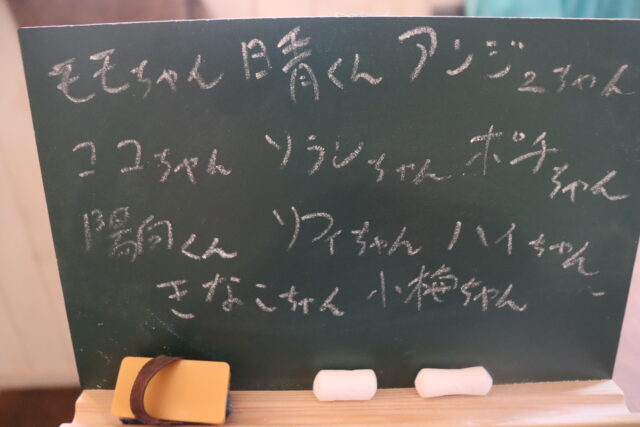 モモちゃん 晴くん アンジュちゃん
ココちゃん ソランちゃん ポチちゃん
陽向くん ソフィちゃん ハイちゃん
きなこちゃん 小梅ちゃん